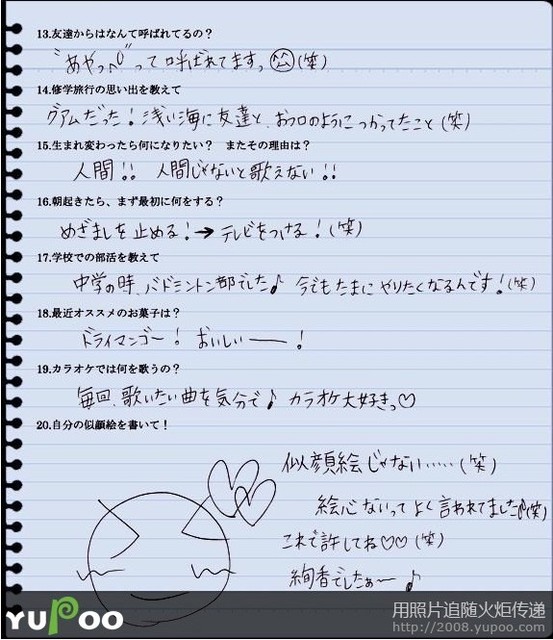 13.友達からはなんて呼ばれてるの？
"あやっぺ"って呼ばれてますっ (笑)
14.修学旅行の思い出を教えて
グアムだった！浅い海に友達と、おフロのようにつかってたこと(笑)
15.生まれ変わったら何になりたい？　またその理由は？
人間!! 人間じゃないと歌えない!!
16.朝起きたら、まず最初に何をする？
めざましを止める！→テレビをつける！(笑)
17.学校での部活を教えて
中学の時、バドミントン部でした♪ 今でもたまにやりたくなるんです！(笑)
18.最近オススメのお菓子は？
ドライマンゴー！ おいしい——！
19.カラオケでは何を歌うの？
毎回、歌いたい曲を気分で♪ カラオケ大好きっ♡
20.自分の似顔絵を書いて！
似顔絵じゃない……(笑)
絵心ないってよく言われてました♪(笑)
これで許してね♡♡(笑)
絢香でしたぁ〜♪
YUPOO
用照片追随火炬传递
http://2008.yupoo.com